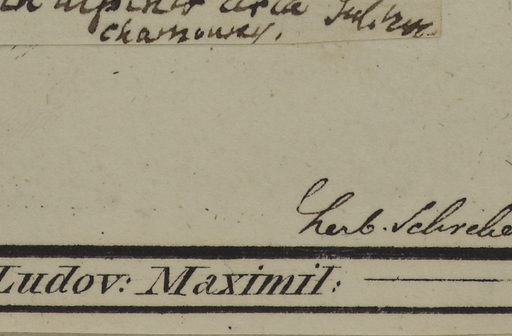 in alpinis circa
chamouny.
Herb. Schrebe
Ludov: Maximil: